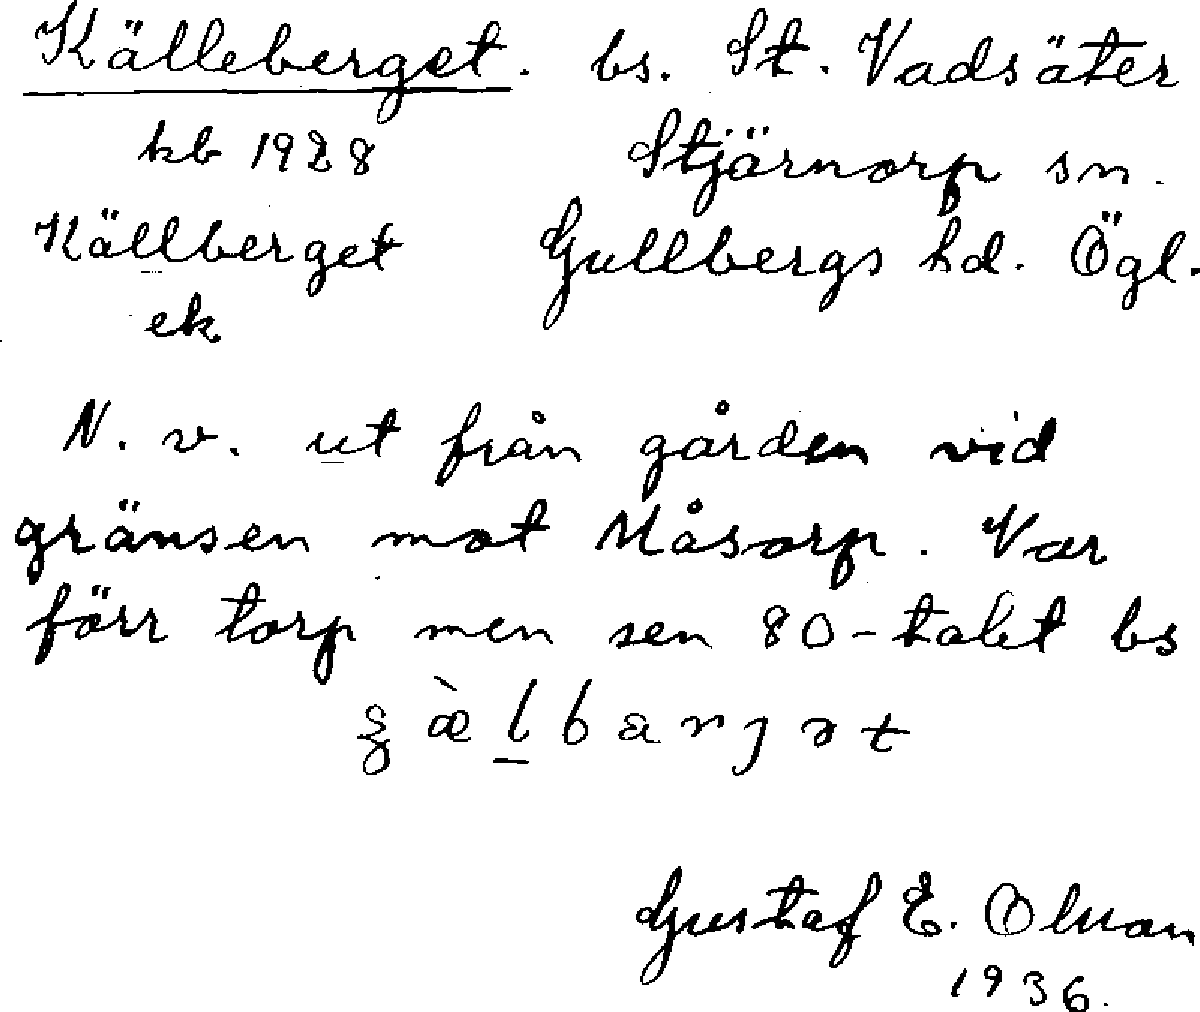 Källeberget. bs. St. Vadsäter
kb 1928 Stjärnorp sn.
Källberget Gullbergs hd. Ögl.
ek
N. v. ut från gården vid
gränsen mot Måsorp. Var
förr torp men sen 80-talet bs
Gustaf E. Olsson
1936.